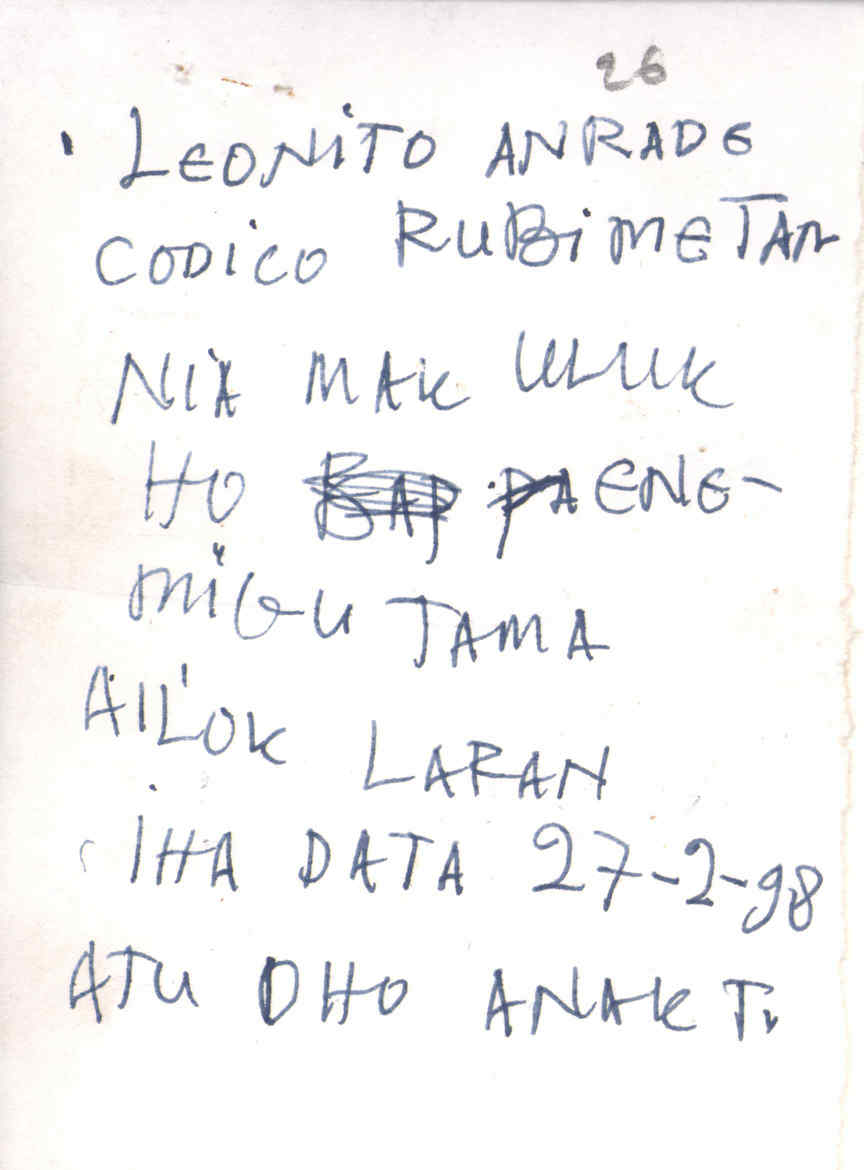 26
LEONITO ANRADE
CODICO RUBIMETAN
NIA MAK ULUK
HO ENE-
MIGU TAMA
AILOK LARAN
IHA DATA 27-2-98
ATU OHO ANAK T.